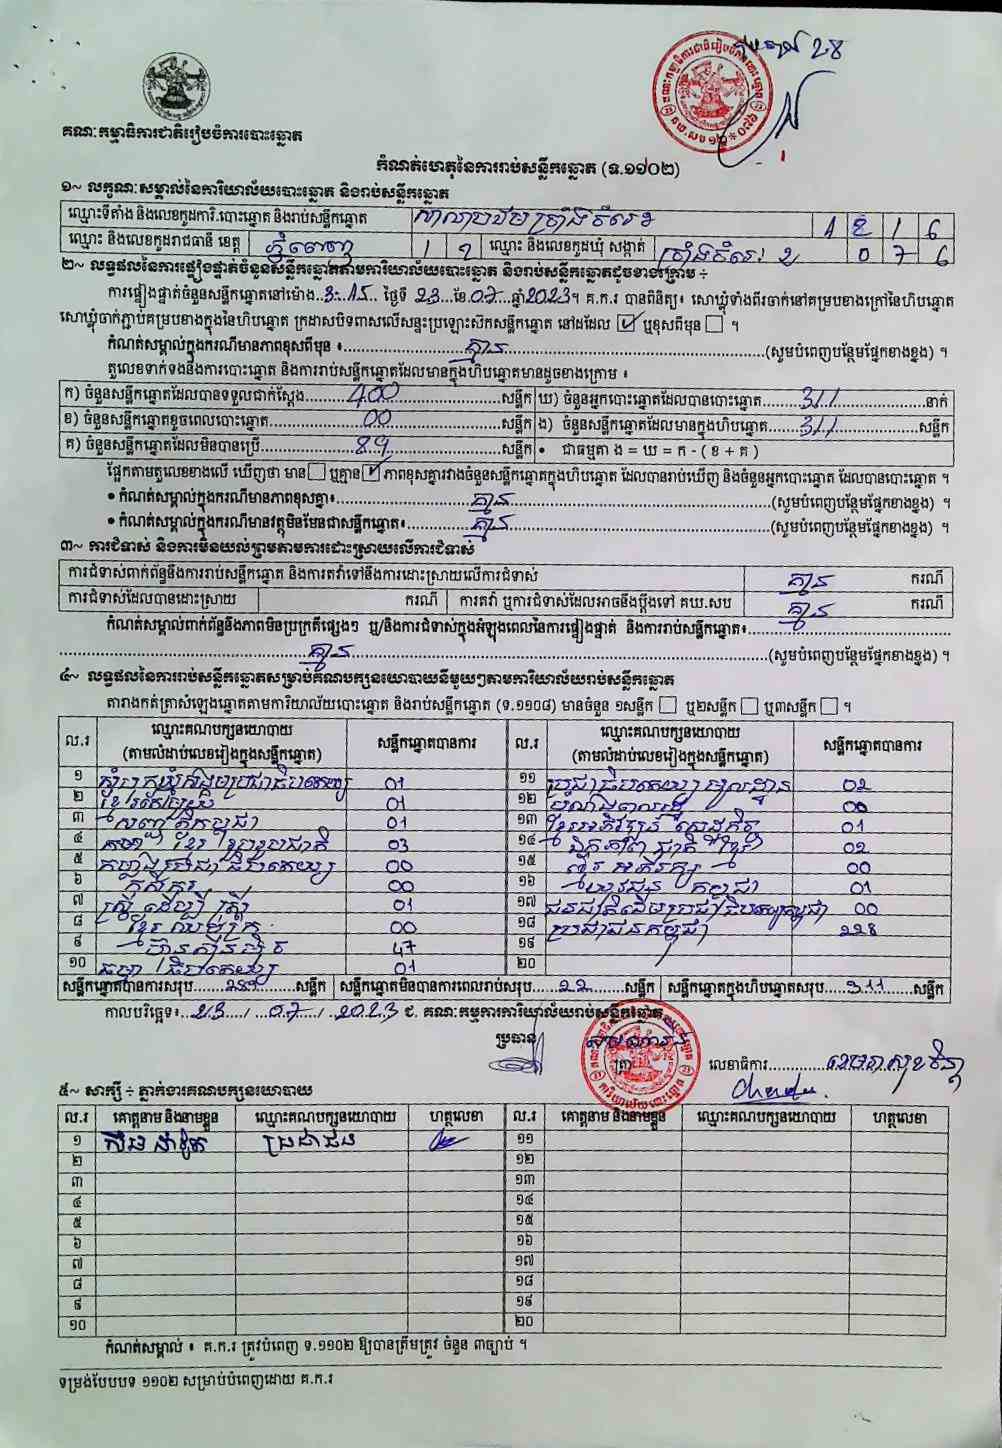 គណៈកម្មាធិការជាតិរៀបចំការបោះឆ្នោត
កំណត់ហេតុនៃការរាប់សន្លឹកឆ្នោត (ទ.១១០២)
១~ លក្ខណៈសម្គាល់នៃការិយាល័យបោះឆ្នោត និងរាប់សន្លឹកឆ្នោត
ឈ្មោះទីតាំង និងលេខកូដការិ.បោះឆ្នោត និងរាប់សន្លឹកឆ្នោត
ឈ្មោះ និងលេខកូដរាជធានី ខេត្ត ភ្នំពេញ 1 2 ឈ្មោះ និងលេខកូដឃុំ សង្កាត់ 0 7 6
២~ លទ្ធផលនៃការផ្ទៀងផ្ទាត់ចំនួនសន្លឹកឆ្នោតតាមការិយាល័យបោះឆ្នោត និងរាប់សន្លឹកឆ្នោតដូចខាងក្រោម ÷
ការផ្ទៀងផ្ទាត់ចំនួនសន្លឹកឆ្នោតនៅម៉ោង 3:15 ថ្ងៃទី 23 ខែ 07 ឆ្នាំ 2023។ គ.ក.រ បានពិនិត្យ៖ សោឃ្លុំទាំងពីរចាក់នៅគម្របខាងក្រៅនៃហិបឆ្នោត
សោឃ្លុំចាក់ភ្ជាប់គម្របខាងក្នុងនៃហិបឆ្នោត ក្រដាសបិទពាសលើសន្ទះប្រឡោះស៊កសន្លឹកឆ្នោត នៅដដែល ☑ ឬខុសពីមុន ☐ ។
កំណត់សម្គាល់ក្នុងករណីមានភាពខុសពីមុន ៖ គ្មាន (សូមបំពេញបន្ថែមផ្នែកខាងខ្នង) ។
តួលេខទាក់ទងនឹងការបោះឆ្នោត និងការរាប់សន្លឹកឆ្នោតដែលមានក្នុងហិបឆ្នោតមានដូចខាងក្រោម ៖
ក) ចំនួនសន្លឹកឆ្នោតដែលបានទទួលជាក់ស្តែង 400 សន្លឹក ឃ) ចំនួនអ្នកបោះឆ្នោតដែលបានបោះឆ្នោត 311 នាក់
ខ) ចំនួនសន្លឹកឆ្នោតខូចពេលបោះឆ្នោត 00 សន្លឹក ង) ចំនួនសន្លឹកឆ្នោតដែលមានក្នុងហិបឆ្នោត 311 សន្លឹក
គ) ចំនួនសន្លឹកឆ្នោតដែលមិនបានប្រើ 89 សន្លឹក • ជាធម្មតា ង = ឃ = ក - ( ខ + គ )
ផ្អែកតាមតួលេខខាងលើ ឃើញថា មាន ☐ ឬគ្មាន ☑ ភាពខុសគ្នារវាងចំនួនសន្លឹកឆ្នោតក្នុងហិបឆ្នោត ដែលបានរាប់ឃើញ និងចំនួនអ្នកបោះឆ្នោត ដែលបានបោះឆ្នោត ។
• កំណត់សម្គាល់ក្នុងករណីមានភាពខុសគ្នា៖ គ្មាន (សូមបំពេញបន្ថែមផ្នែកខាងខ្នង) ។
• កំណត់សម្គាល់ក្នុងករណីមានវត្ថុមិនមែនជាសន្លឹកឆ្នោត៖ គ្មាន (សូមបំពេញបន្ថែមផ្នែកខាងខ្នង) ។
៣~ ការជំទាស់ និងការមិនយល់ព្រមតាមការដោះស្រាយលើការជំទាស់
ការជំទាស់ពាក់ព័ន្ធនឹងការរាប់សន្លឹកឆ្នោត និងការតវ៉ាទៅនឹងការដោះស្រាយលើការជំទាស់ គ្មាន ករណី
ការជំទាស់ដែលបានដោះស្រាយ ករណី ការតវ៉ា ឬការជំទាស់ដែលអាចនឹងប្តឹងទៅ គឃ.សប គ្មាន ករណី
កំណត់សម្គាល់ពាក់ព័ន្ធនឹងភាពមិនប្រក្រតីផ្សេងៗ ឬ/និងការជំទាស់ក្នុងអំឡុងពេលនៃការផ្ទៀងផ្ទាត់ និងការរាប់សន្លឹកឆ្នោត៖
គ្មាន (សូមបំពេញបន្ថែមផ្នែកខាងខ្នង) ។
៤~ លទ្ធផលនៃការរាប់សន្លឹកឆ្នោតសម្រាប់គណបក្សនយោបាយនីមួយៗតាមការិយាល័យរាប់សន្លឹកឆ្នោត
តារាងកត់ត្រាសំឡេងឆ្នោតតាមការិយាល័យបោះឆ្នោត និងរាប់សន្លឹកឆ្នោត (ទ.១១០៨) មានចំនួន ១សន្លឹក ☐ ឬ២សន្លឹក ☐ ឬ៣សន្លឹក ☐ ។
ល.រ ឈ្មោះគណបក្សនយោបាយ (តាមលំដាប់លេខរៀងក្នុងសន្លឹកឆ្នោត) សន្លឹកឆ្នោតបានការ ល.រ ឈ្មោះគណបក្សនយោបាយ (តាមលំដាប់លេខរៀងក្នុងសន្លឹកឆ្នោត) សន្លឹកឆ្នោតបានការ
១ 01 ១១ ប្រជាធិបតេយ្យមូលដ្ឋាន 02
២ 01 ១២ 00
៣ 01 ១៣ ខ្មែរអភិវឌ្ឍន៍សេដ្ឋកិច្ច 01
៤ 03 ១៤ ឯកភាពជាតិខ្មែរ 02
៥ 00 ១៥ ខ្មែរអភិរក្ស 00
៦ កសិករ 00 ១៦ យុវជនកម្ពុជា 01
៧ ស្ត្រីដើម្បីស្ត្រី 01 ១៧ ជនជាតិដើមប្រជាធិបតេយ្យកម្ពុជា 00
៨ ខ្មែរឈប់ក្រ 00 ១៨ ប្រជាជនកម្ពុជា 228
៩ ហ៊្វុនស៊ិនប៉ិច 47 ១៩
១០ ធម្មាធិបតេយ្យ 01 ២០
សន្លឹកឆ្នោតបានការសរុប 289 សន្លឹក សន្លឹកឆ្នោតមិនបានការពេលរាប់សរុប 22 សន្លឹក សន្លឹកឆ្នោតក្នុងហិបឆ្នោតសរុប 311 សន្លឹក
កាលបរិច្ឆេទ៖ 23 / 07 / 2023 ជ. គណៈកម្មការការិយាល័យរាប់សន្លឹកឆ្នោត
ប្រធាន ត្រា លេខាធិការ
៥~ សាក្សី ÷ ភ្នាក់ងារគណបក្សនយោបាយ
ល.រ គោត្តនាម និងនាមខ្លួន ឈ្មោះគណបក្សនយោបាយ ហត្ថលេខា ល.រ គោត្តនាម និងនាមខ្លួន ឈ្មោះគណបក្សនយោបាយ ហត្ថលេខា
១ ប្រជាជន ១១
២ ១២
៣ ១៣
៤ ១៤
៥ ១៥
៦ ១៦
៧ ១៧
៨ ១៨
៩ ១៩
១០ ២០
កំណត់សម្គាល់ ៖ គ.ក.រ ត្រូវបំពេញ ទ.១១០២ ឱ្យបានត្រឹមត្រូវ ចំនួន ៣ច្បាប់ ។
ទម្រង់បែបបទ ១១០២ សម្រាប់បំពេញដោយ គ.ក.រ